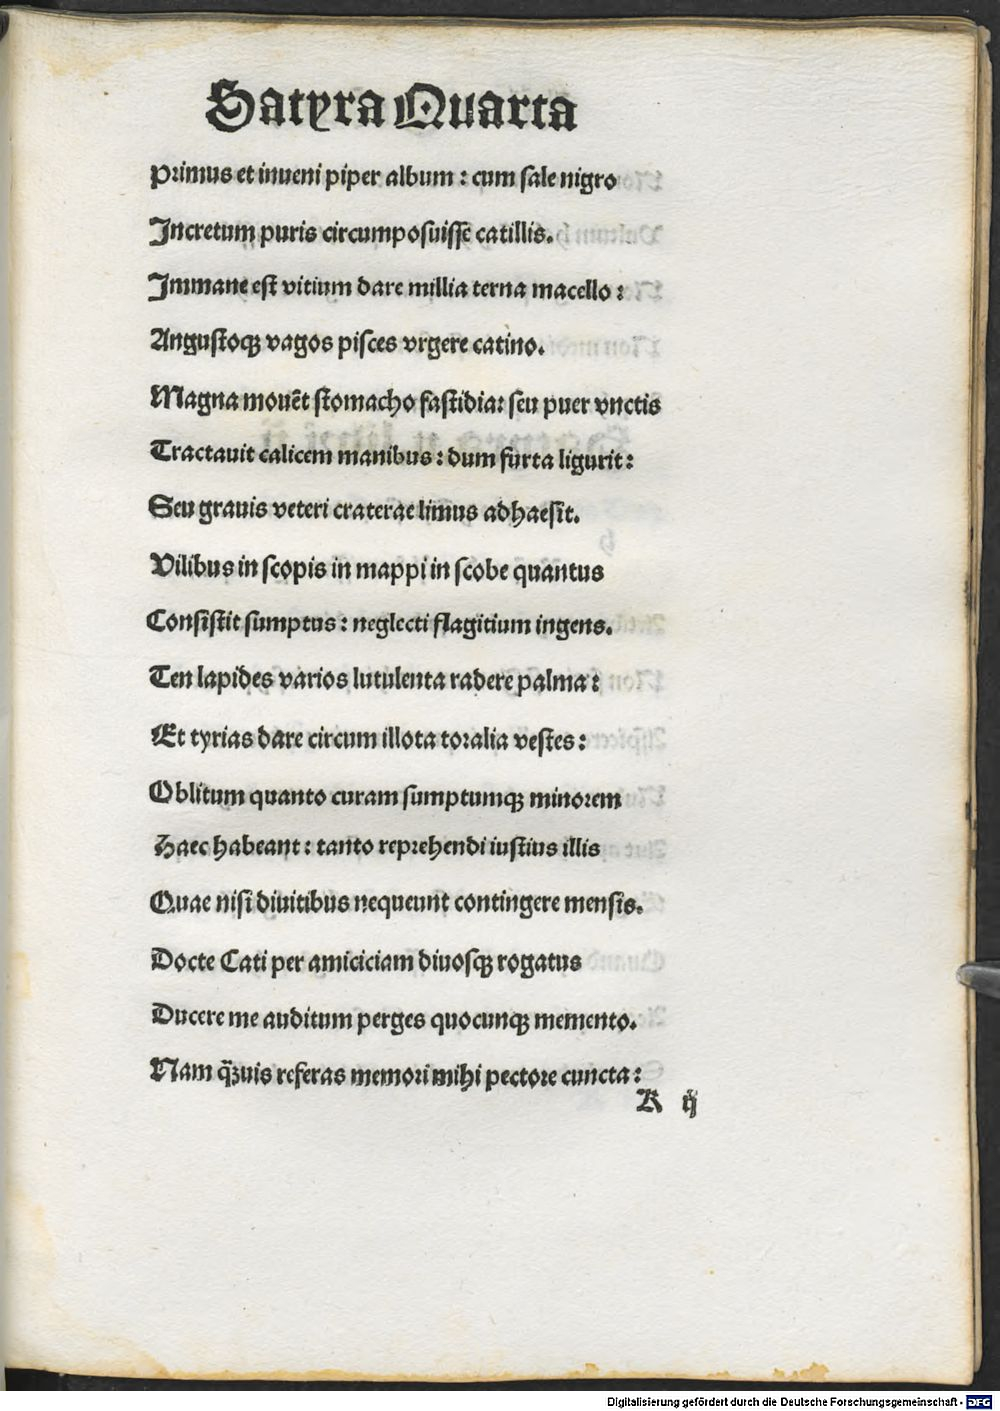 Satyra Quarta
Primus et inueni piper album : cum sale nigro
Incretum puris circumposuisſe catillis.
Immane est vitium dare millia terna macello :
Angustoqꝫ vagos pisces vrgere catino.
Magna mouēt stomacho fastidia: seu puer vnctis
Tractauit calicem manibus : dum furta ligurit :
Seu grauis veteri craterae limus adhaesit.
Vilibus in scopis in mappi in scobe quantus
Consistit sumptus : neglecti flagitium ingens.
Ten lapides varios lutulenta radere palma :
Et tyrias dare circum illota toralia vestes :
Oblitum quanto curam sumptumqꝫ minorem
Haec habeant : tanto reprehendi iustius illis
Quae nisi diuitibus nequeunt contingere mensis.
Docte Cati per amiciciam diuosqꝫ rogatus
Ducere me auditum perges quocunqꝫ memento.
Nam q̄ꝫuis referas memori mihi pectore cuncta :
K ij
Digitalisierung gefördert durch die Deutsche Forschungsgemeinschaft - DFG